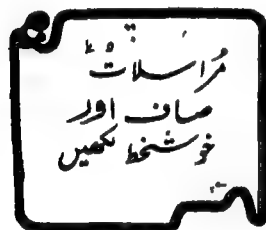 مُراسلات
صاف اور
خوشخط لکھیں